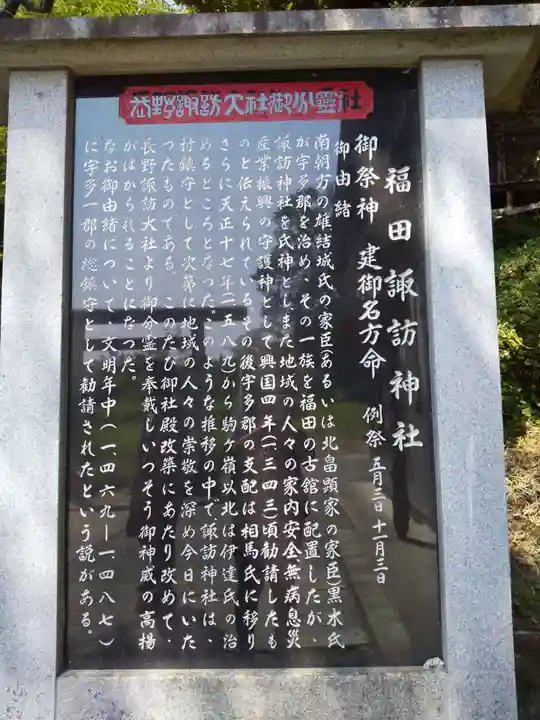 長野諏訪大社御分靈社
福田諏訪神社
御祭神 建御名方命 例祭 五月三日 十一月三日
御由緒
南朝方の雄結城氏の家臣(あるいは北畠顕家の家臣)黒木氏
が宇多郡を治め、その一族を福田の古舘に配置したが、
諏訪神社を氏神としまた地域の人々の家内安全無病息災
産業振興の守護神として興国四年(一、三四三)頃勧請したも
のと伝えられているその後宇多郡の支配は相馬氏に移り
さらに天正十七年(一、五八九)から駒ヶ嶺以北は伊達氏の治
めるところとなった。このような推移の中で諏訪神社は、
村鎮守として次第に地域の人々の崇敬を深め今日にいた
ったものである。このたび御社殿改築にあたり改めて、
長野諏訪大社より御分霊を奉戴しいっそう御神威の高揚
がはかられることになった。
なお御由緒について、文明年中(一、四六九―一、四八七)
に宇多一郡の総鎮守として勧請されたという説がある。